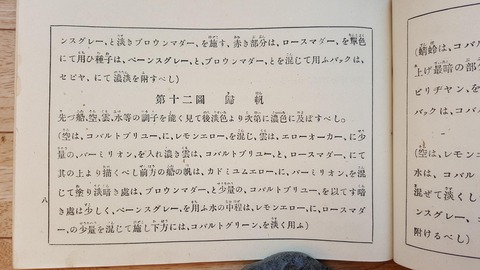 ンスグレー、と淡きブラウンマダー、を施す、赤き部分は、ロースマダー、を単色
にて用ひ種子は、ペーンスグレー、と、ブロウンマダー、とを混じて用ふバックは、
セピヤ、にて濃淡を附すべし)
第十二圖 歸帆
先づ船、空、雲、水等の調子を能く見て後淡色より次第に濃色に及ぼすべし。
(空は、コバルトブリユー、に、レモンエロー、を混じ、雲は、エローオーカー、に少
量の、バーミリオン、を入れ濃き雲は、コバルトブリユー、と、ロースマダー、にて
其の上より描くべし前方の船の帆は、カドミユムエロー、に、バーミリオン、を混
じて塗り淡暗き處は、ブロウンマダー、と少量の、コバルトブリユー、を以てす暗
き處は少しく、ペーンスグレー、を用ふ水の中程は、レモンエロー、に、ロースマダ
ー、の少量を混じて施し下方には、コバルトグリーン、を淡く用ふ)
八
(蜻蛉は、コバル
上げ最暗の部分
ビリヂヤン、を
バックは、コバ
(空は、レモンエ
水は、コバル
混ぜて淡くし
ンスグレー、コ
附けるべし)